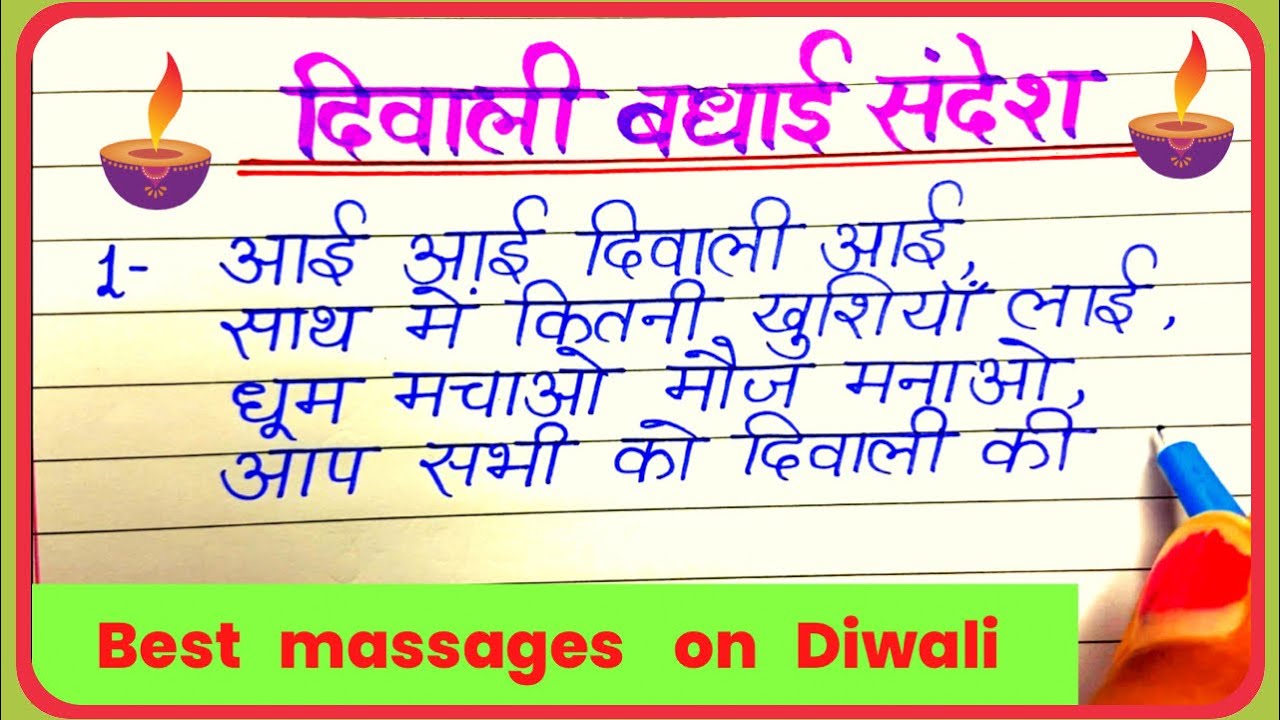 दिवाली बधाई संदेश
1- आई आई दिवाली आई,
साथ में कितनी खुशियाँ लाई,
धूम मचाओ मौज मनाओ,
आप सभी को दिवाली की
Best massages on Diwali